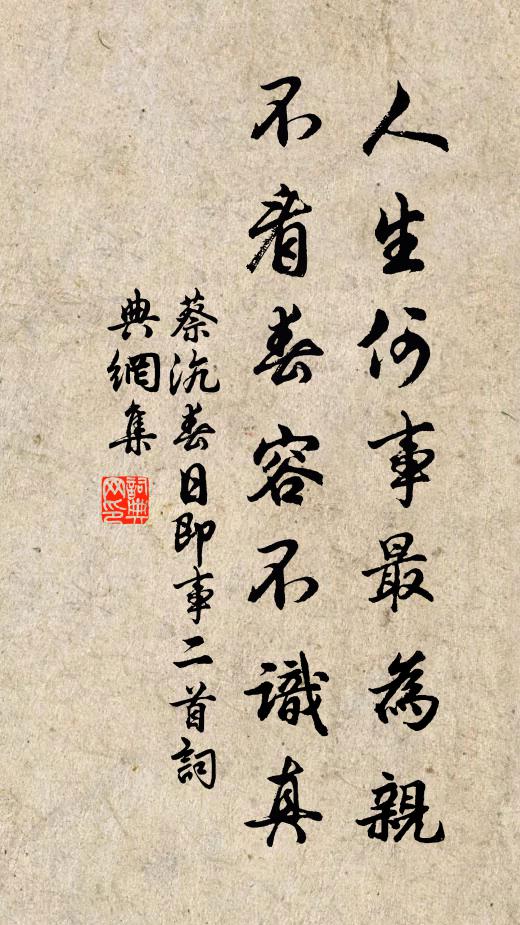 人生何事最為親
不看春容不識真
蔡沈春日即事二首詞
典網集
詞典網印